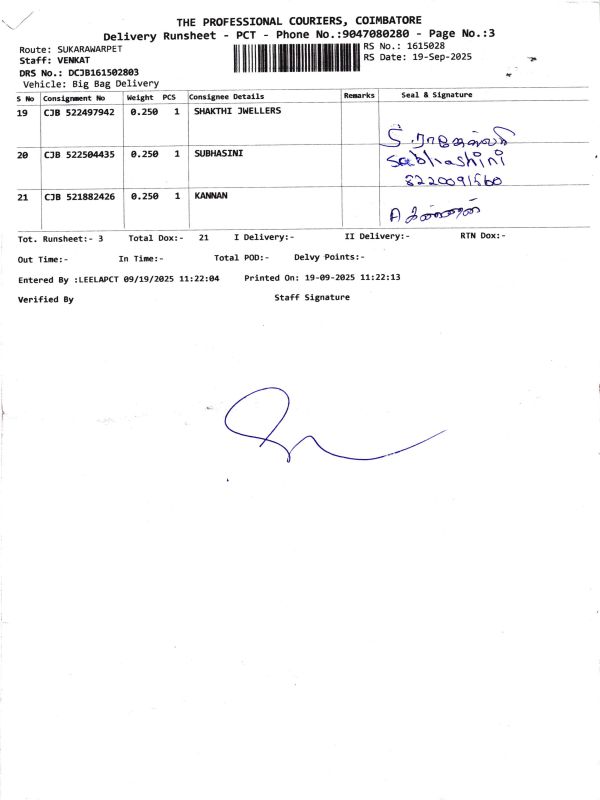 THE PROFESSIONAL COURIERS, COIMBATORE
Delivery Runsheet - PCT - Phone No.:9047080280 - Page No.:3
Route: SUKARAWARPET
RS No.: 1615028
Staff: VENKAT
RS Date: 19-Sep-2025
DRS No.: DCJB161502803
Vehicle: Big Bag Delivery
S No Consignment No Weight PCS Consignee Details Remarks Seal & Signature
19 CJB 522497942 0.250 1 SHAKTHI JWELLERS
20 CJB 522504435 0.250 1 SUBHASINI
Sabhashini
8220091560
21 CJB 521882426 0.250 1 KANNAN
Tot. Runsheet:- 3 Total Dox:- 21 I Delivery:- II Delivery:- RTN Dox:-
Out Time:- In Time:- Total POD:- Delvy Points:-
Entered By :LEELAPCT 09/19/2025 11:22:04 Printed On: 19-09-2025 11:22:13
Verified By Staff Signature